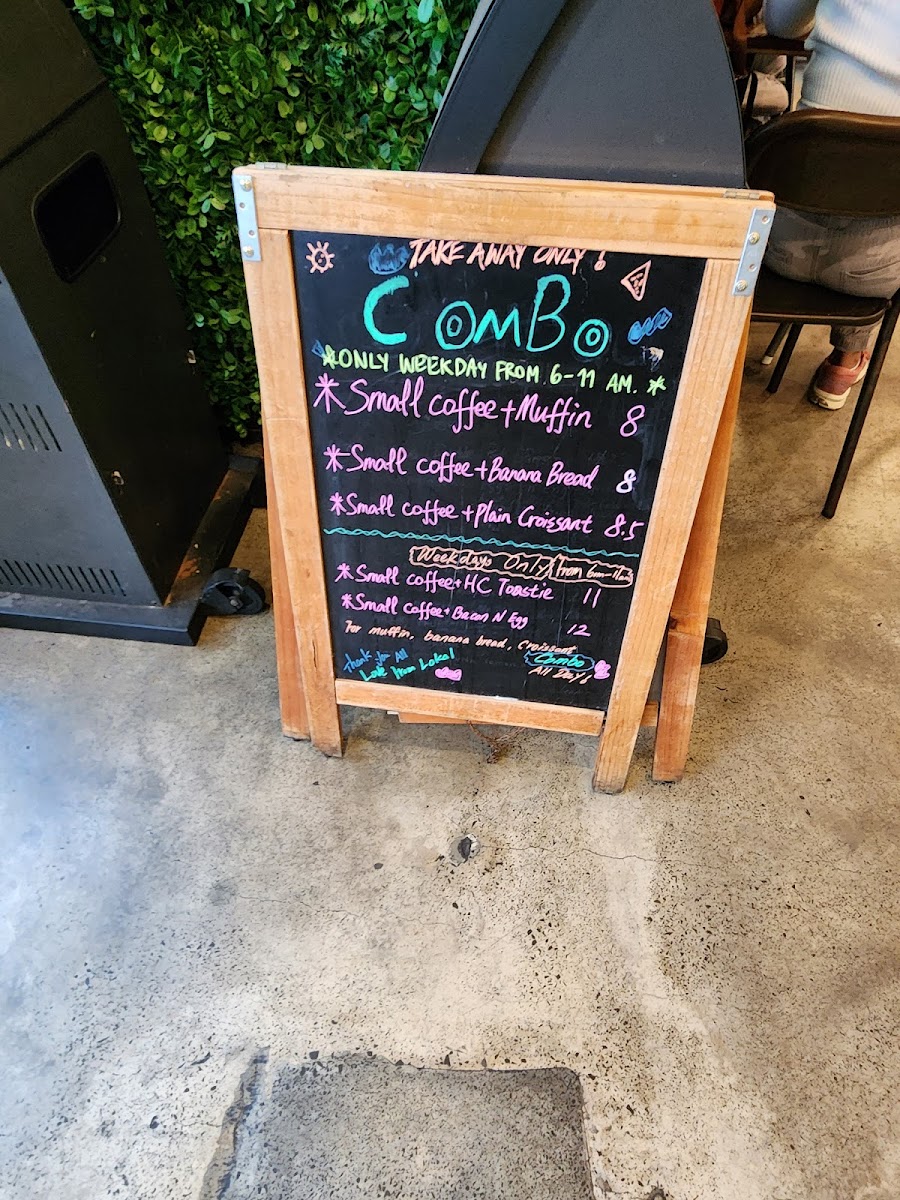 TAKE AWAY ONLY !
ComBo
*ONLY WEEKDAY FROM 6-11 AM. *
*Small coffee+Muffin 8
*Small coffee+Banana Bread 8
*Small coffee+Plain Croissant 8.5
Weekdays Only from 6am-11am
*Small coffee+HC Toastie 11
*Small coffee+Bacon N Egg 12
For muffin, banana bread, Croissant
Combo
All Day!
Thank for All
Love from Lokal